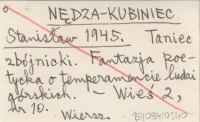 NĘDZA-KUBINIEC
Stanisław 1945. Taniec
zbójnicki. Fantazja poe-
tycka o temperamencie ludzi
górskich. – Wieś 2,
nr 10.
Wiersz.